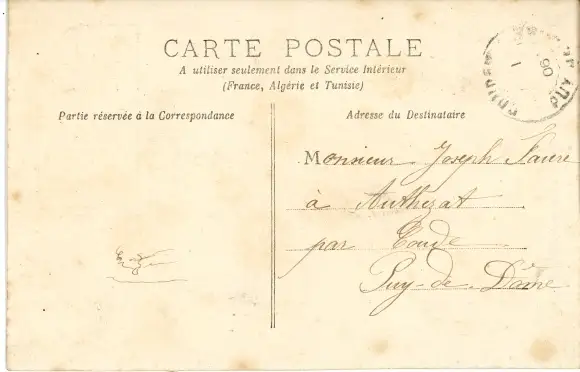 CARTE POSTALE
A utiliser seulement dans le Service Intérieur
(France, Algérie et Tunisie)
Partie réservée à la Correspondance
Adresse du Destinataire
Monsieur Joseph Faure
à Authezat
par Coude
Puy-de-Dôme
1
06
PUY